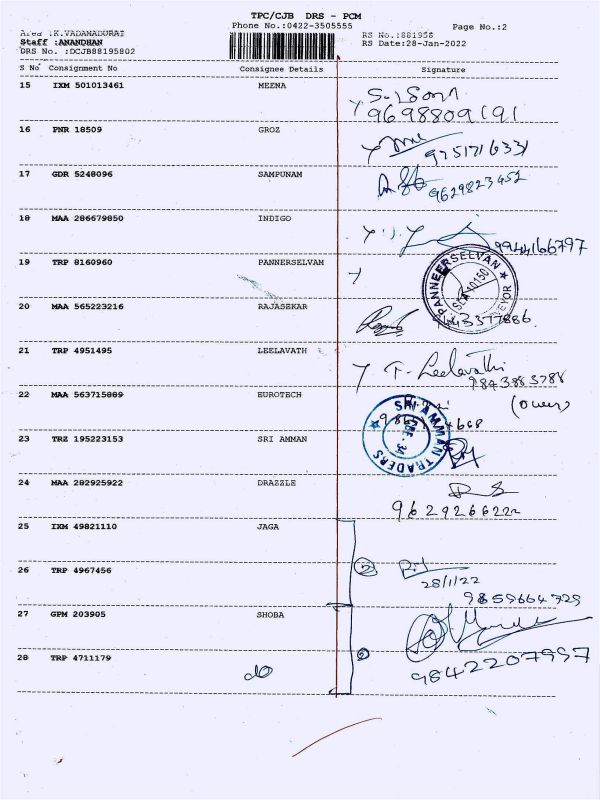 TPC/CJB DRS - PCM
Phone No.:0422-3505555
Page No.:2
Area :K.VADAMADURAI
RS No.:881958
Staff :ANANDHAN
RS Date:28-Jan-2022
DRS No. :DCJB88195802
S No Consignment No Consignee Details Signature
15 IXM 501013461 MEENA
9698809191
16 PNR 18509 GROZ
9751716331
17 GDR 5248096 SAMPUNAM
9629823452
18 MAA 286679850 INDIGO
9944166797
19 TRP 8160960 PANNERSELVAM
PANNEERSELVAN
20 MAA 565223216 RAJASEKAR
21 TRP 4951495 LEELAVATH
T. Leelavathi
9843883788
22 MAA 563715889 EUROTECH
(Owen)
23 TRZ 195223153 SRI AMMAN
SRI AMMAN TRADERS
24 MAA 282925922 DRAZZLE
9629266222
25 IXM 49821110 JAGA
26 TRP 4967456
2
28/1/22
9859664729
27 GPM 203905 SHOBA
28 TRP 4711179 do
2
9842207997